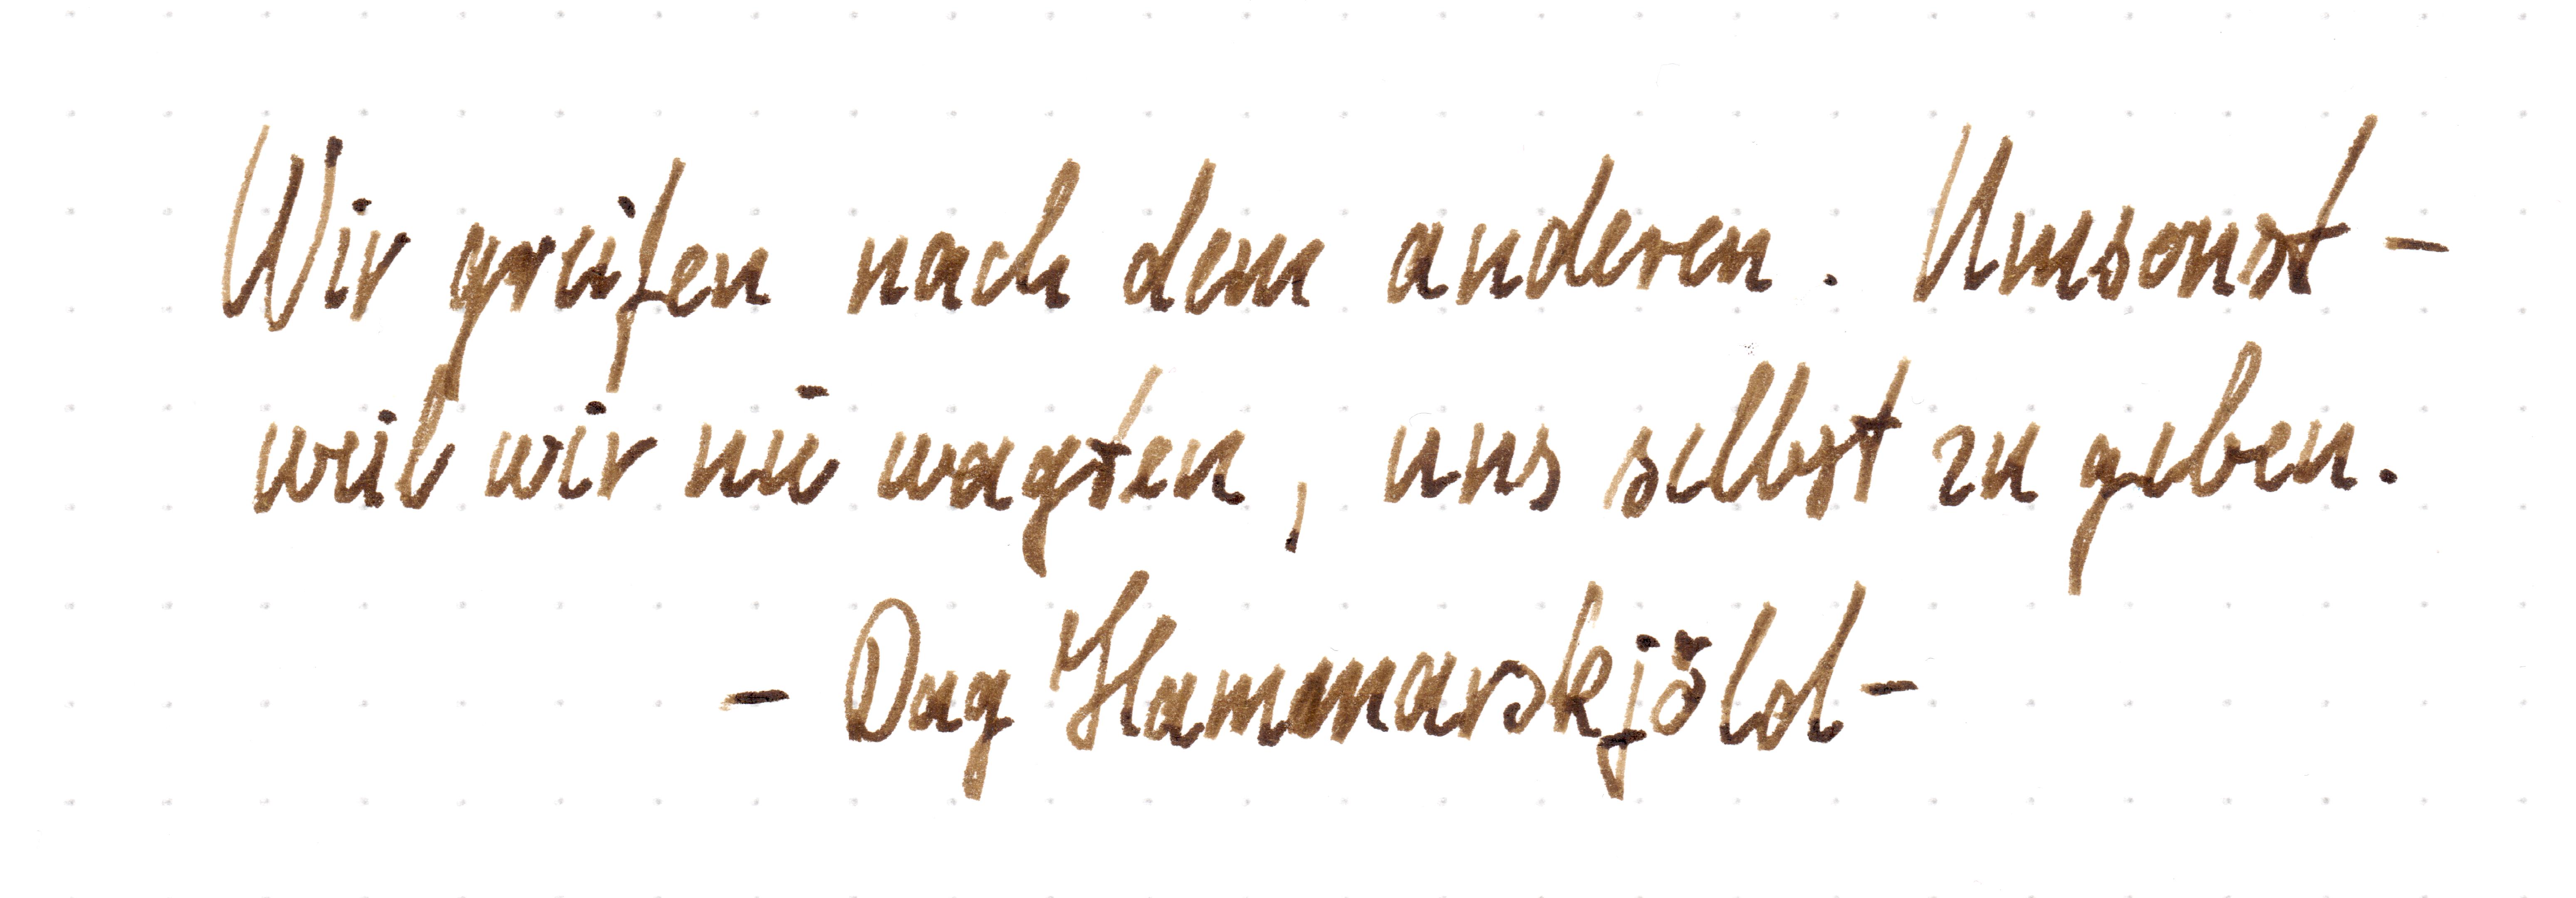 Wir greifen nach dem anderen. Umsonst -
weil wir nie wagten, uns selbst zu geben.
- Dag Hammarskjöld -